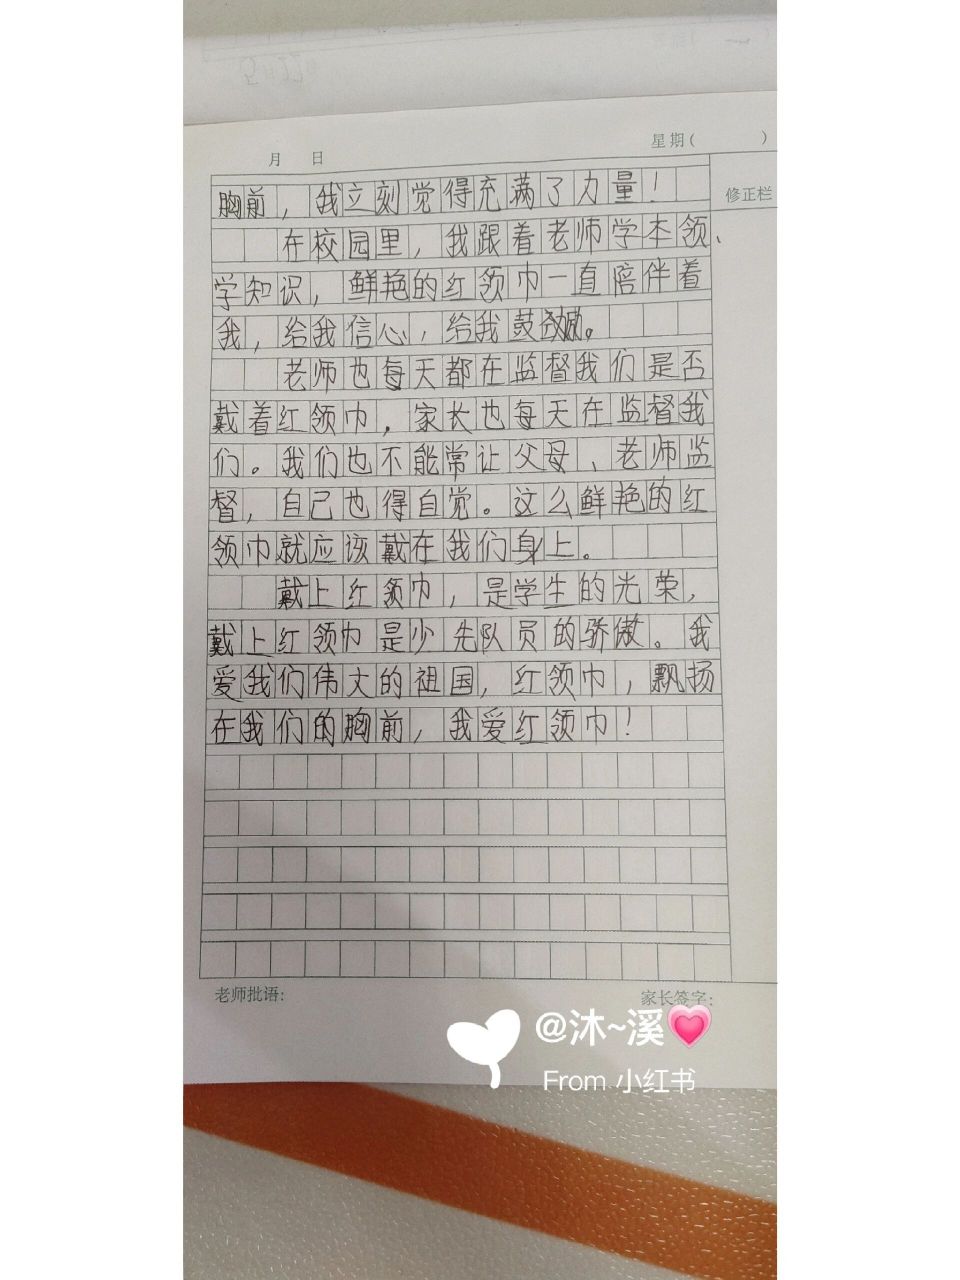 月 日
星期( )
修正栏
胸前，我立刻觉得充满了力量！
在校园里，我跟着老师学本领、
学知识，鲜艳的红领巾一直陪伴着
我，给我信心，给我鼓励。
老师也每天都在监督我们是否
戴着红领巾，家长也每天在监督我
们。我们也不能常让父母、老师监
督，自己也得自觉。这么鲜艳的红
领巾就应该戴在我们身上。
戴上红领巾，是学生的光荣，
戴上红领巾是少先队员的骄傲。我
爱我们伟大的祖国，红领巾，飘扬
在我们的胸前，我爱红领巾！
老师批语:
家长签字:
@沐~溪
From 小红书